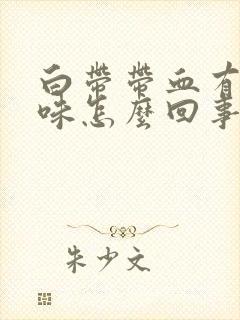 白帶帶血有
味怎麼回事
朱少文